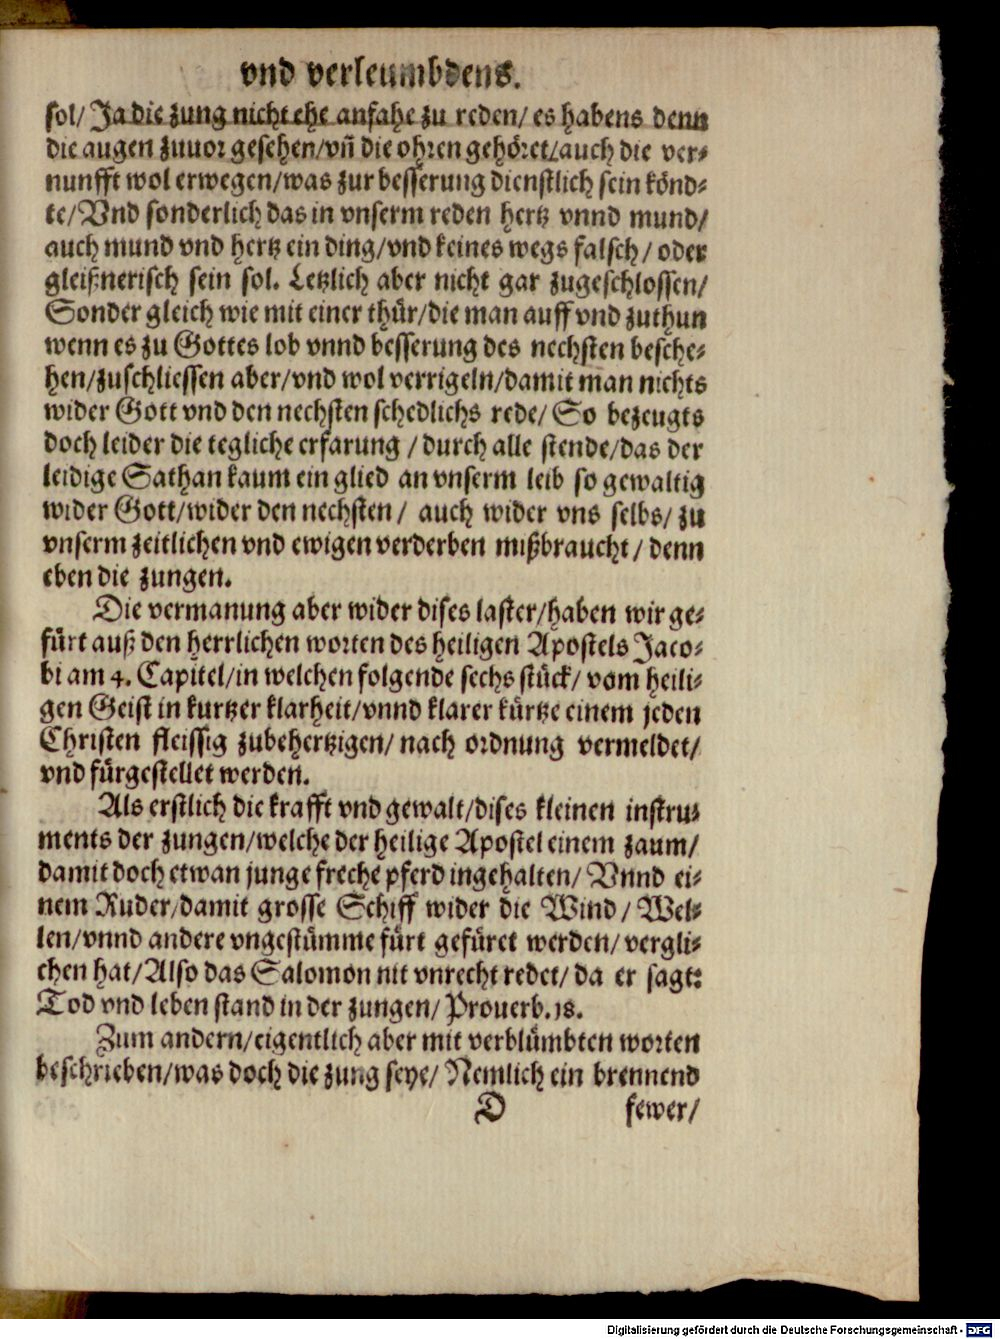 vnd verleumbdens.
sol/ Ja die zung nicht ehe anfahe zu reden/ es habens denn
die augen zuuor gesehen/vñ die ohren gehöret/auch die ver-
nunfft wol erwegen/was zur besserung dienstlich sein könd-
te/Vnd sonderlich das in vnserm reden hertz vnnd mund/
auch mund vnd hertz ein ding/vnd keines wegs falsch/ oder
gleißnerisch sein sol. Letzlich aber nicht gar zugeschlossen/
Sonder gleich wie mit einer thür/die man auff vnd zuthun
wenn es zu Gottes lob vnnd besserung des nechsten besche-
hen/zuschliessen aber/vnd wol verrigeln/damit man nichts
wider Gott vnd den nechsten schedlichs rede/ So bezeugts
doch leider die tegliche erfarung /durch alle stende/das der
leidige Sathan kaum ein glied an vnserm leib so gewaltig
wider Gott/wider den nechsten/ auch wider vns selbs/ zu
vnserm zeitlichen vnd ewigen verderben mißbraucht/ denn
eben die zungen.
Die vermanung aber wider dises laster/haben wir ge-
fürt auß den herrlichen worten des heiligen Apostels Jaco-
bi am 4. Capitel/in welchen folgende sechs stück/ vom heili-
gen Geist in kurtzer klarheit/vnnd klarer kürtze einem jeden
Christen fleissig zubehertzigen/ nach ordnung vermeldet/
vnd fürgestellet werden.
Als erstlich die krafft vnd gewalt/dises kleinen instru-
ments der zungen/welche der heilige Apostel einem zaum/
damit doch etwan junge freche pferd ingehalten/ Vnnd ei-
nem Ruder/damit grosse Schiff wider die Wind/ Wel-
len/vnnd andere vngestümme fürt gefüret werden/ vergli-
chen hat/Also das Salomon nit vnrecht redet/ da er sagt:
Tod vnd leben stand in der zungen/ Prouerb.18.
Zum andern/eigentlich aber mit verblümbten worten
beschrieben/was doch die zung seye/ Nemlich ein brennend
D fewer/
Digitalisierung gefördert durch die Deutsche Forschungsgemeinschaft - DFG